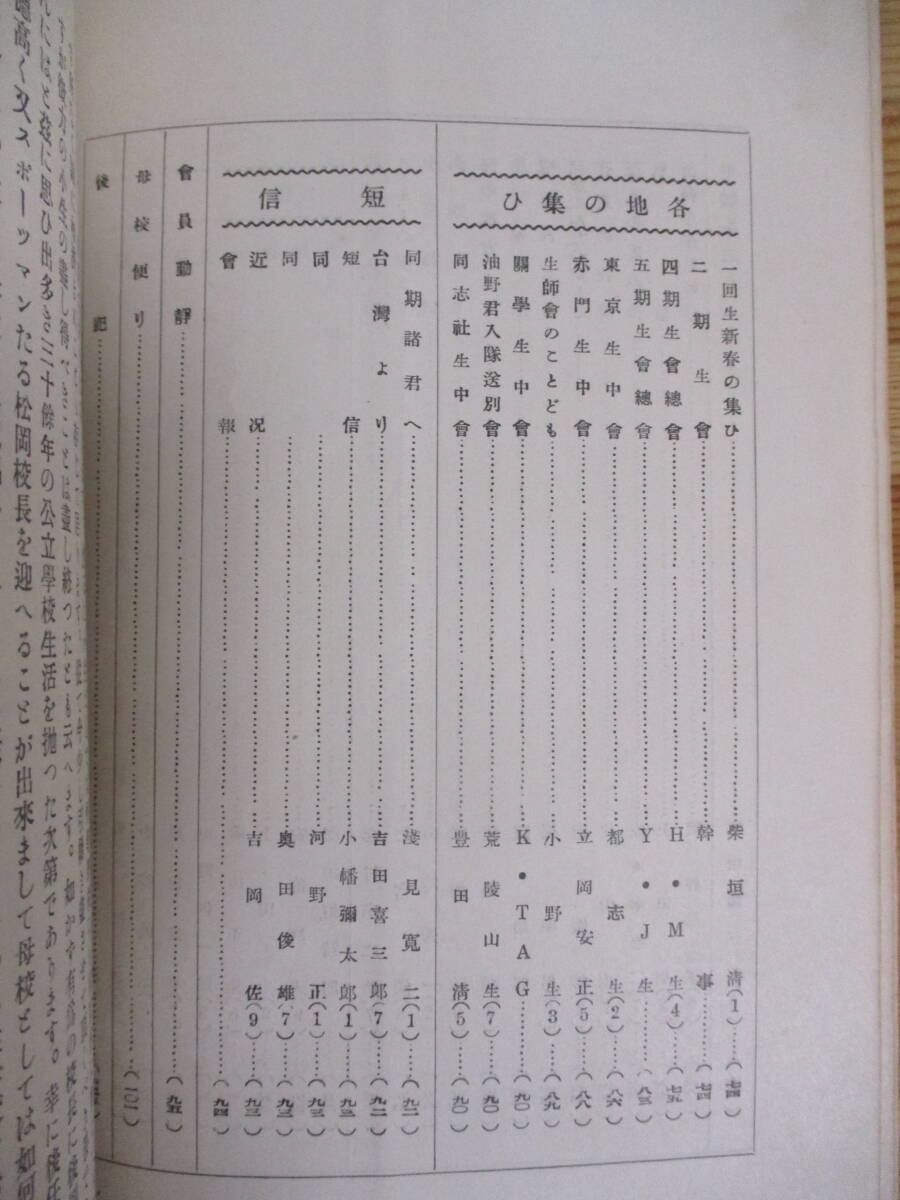 各地の集ひ
一回生新春の集ひ……柴垣 清(1)……(七四)
二期生會……幹事……(七四)
四期生會總會……H・M生(4)……(七五)
五期生會總會……Y・J生……(八三)
東京生中會……都志生(2)……(八六)
赤門生中會……立岡安正(5)……(八八)
生師會のことども……小野生(3)……(八九)
關學生中會……K・TAG……(九〇)
油野君入隊送別會……荒陵山生(7)……(九〇)
同志社生中會……豊田清(5)……(九〇)
短信
同期諸君へ……淺見寬二(1)……(九二)
台灣より……吉田喜三郎(7)……(九二)
短信……小幡彌太郎(1)……(九三)
同……河野正(1)……(九三)
同……奥田俊雄(7)……(九三)
近况……吉岡佐(9)……(九三)
會報……(九四)
會員動靜……(九五)
母校便り……(101)
後記
こには盡し終つたとも云へます。
に思ひ出多き三十餘年の公立學校生活を抛つた次第であります。幸に
高く又スポーツマンたる松岡校長を迎へることが出來まして母校としては如何